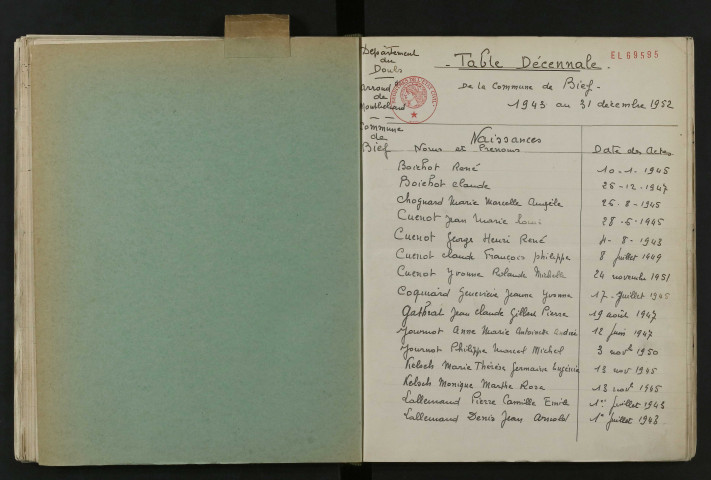 Département
du
Doubs
arrond^t
de
Montbéliard
Commune
de
Bief
EL 69595
- Table Décennale -
De la Commune de Bief -
1943 au 31 décembre 1952
Naissances
Noms et Prénoms Date des Actes
Boichot René 10-1-1945
Boichot Claude 26-12-1947
Chognard Marie Marcelle Angèle 26-8-1945
Cuenot Jean Marie Louis 28-6-1945
Cuenot George Henri René 4-8-1943
Cuenot Claude François Philippe 8 juillet 1949
Cuenot Yvonne Rolande Michelle 24 novembre 1951
Coquiard Geneviève Jeanne Yvonne 17 Juillet 1945
Jean Claude Gilbert Pierre 19 août 1947
Journot Anne Marie Antoinette Andrée 12 juin 1947
Journot Philippe Marcel Michel 3 nov^b 1950
Kelsch Marie Thérèse Germaine Eugénie 13 nov 1945
Kelsch Monique Marthe Rose 13 nov^b 1945
Lallemand Pierre Camille Emile 1^er juillet 1943
Lallemand Denis Jean Arnold 1^er juillet 1943